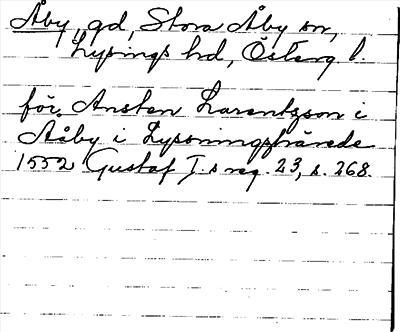 Åby, gd, Stora Åby sn,
Lysings hd, Österg. l.
för Ansten Larentzson i
Aåby i Lysningzhärede
1552 Gustaf I.s reg. 23, s. 268.